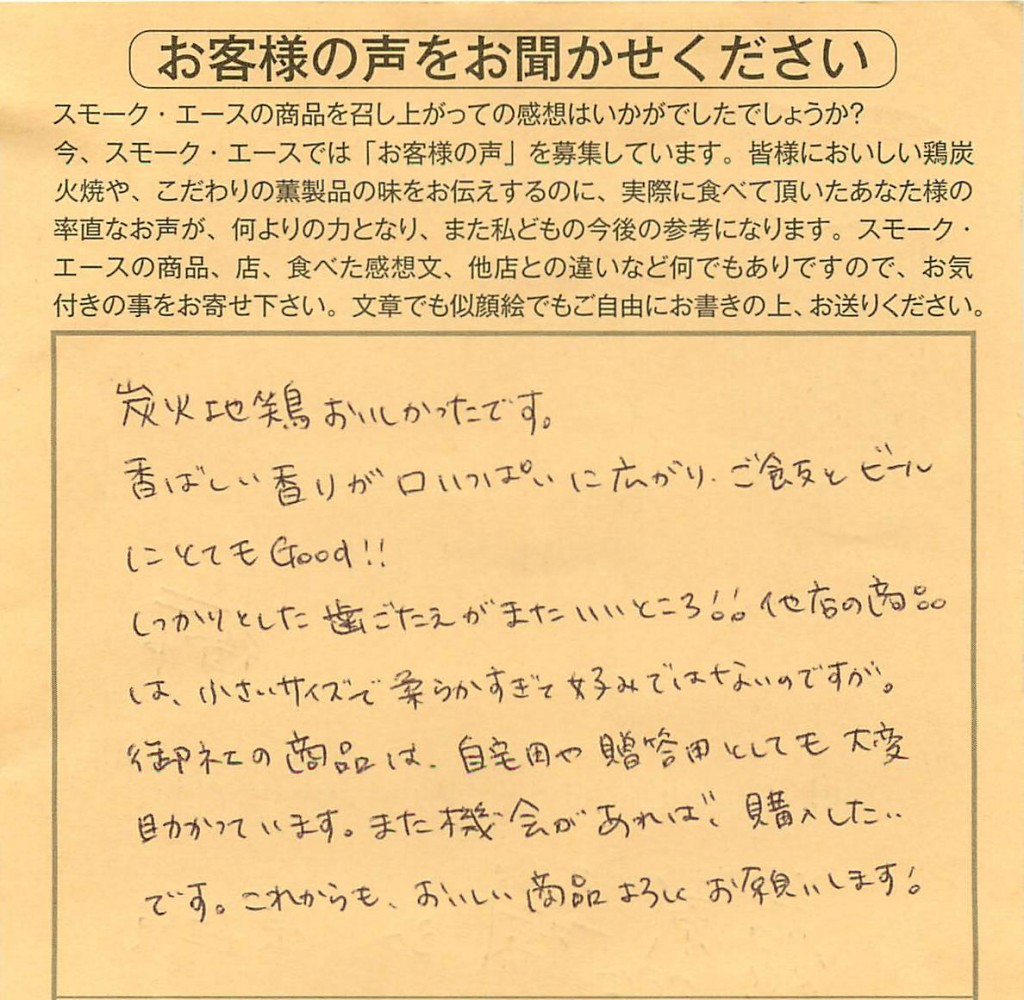 お客様の声をお聞かせください
スモーク・エースの商品を召し上がっての感想はいかがでしたでしょうか?
今、スモーク・エースでは「お客様の声」を募集しています。皆様においしい鶏炭
火焼や、こだわりの薫製品の味をお伝えするのに、実際に食べて頂いたあなた様の
率直なお声が、何よりの力となり、また私どもの今後の参考になります。スモーク・
エースの商品、店、食べた感想文、他店との違いなど何でもありですので、お気
付きの事をお寄せ下さい。文章でも似顔絵でもご自由にお書きの上、お送りください。
炭火地鶏おいしかったです。
香ばしい香りが口いっぱいに広がり、ご飯とビール
にとてもGood!!
しっかりとした歯ごたえがまたいいところ!! 他店の商品
は、小さいサイズで柔らかすぎて好みではないのですが。
御社の商品は、自宅用や贈答用としても大変
助かっています。また機会があれば、購入したい
です。これからも、おいしい商品よろしくお願いします!